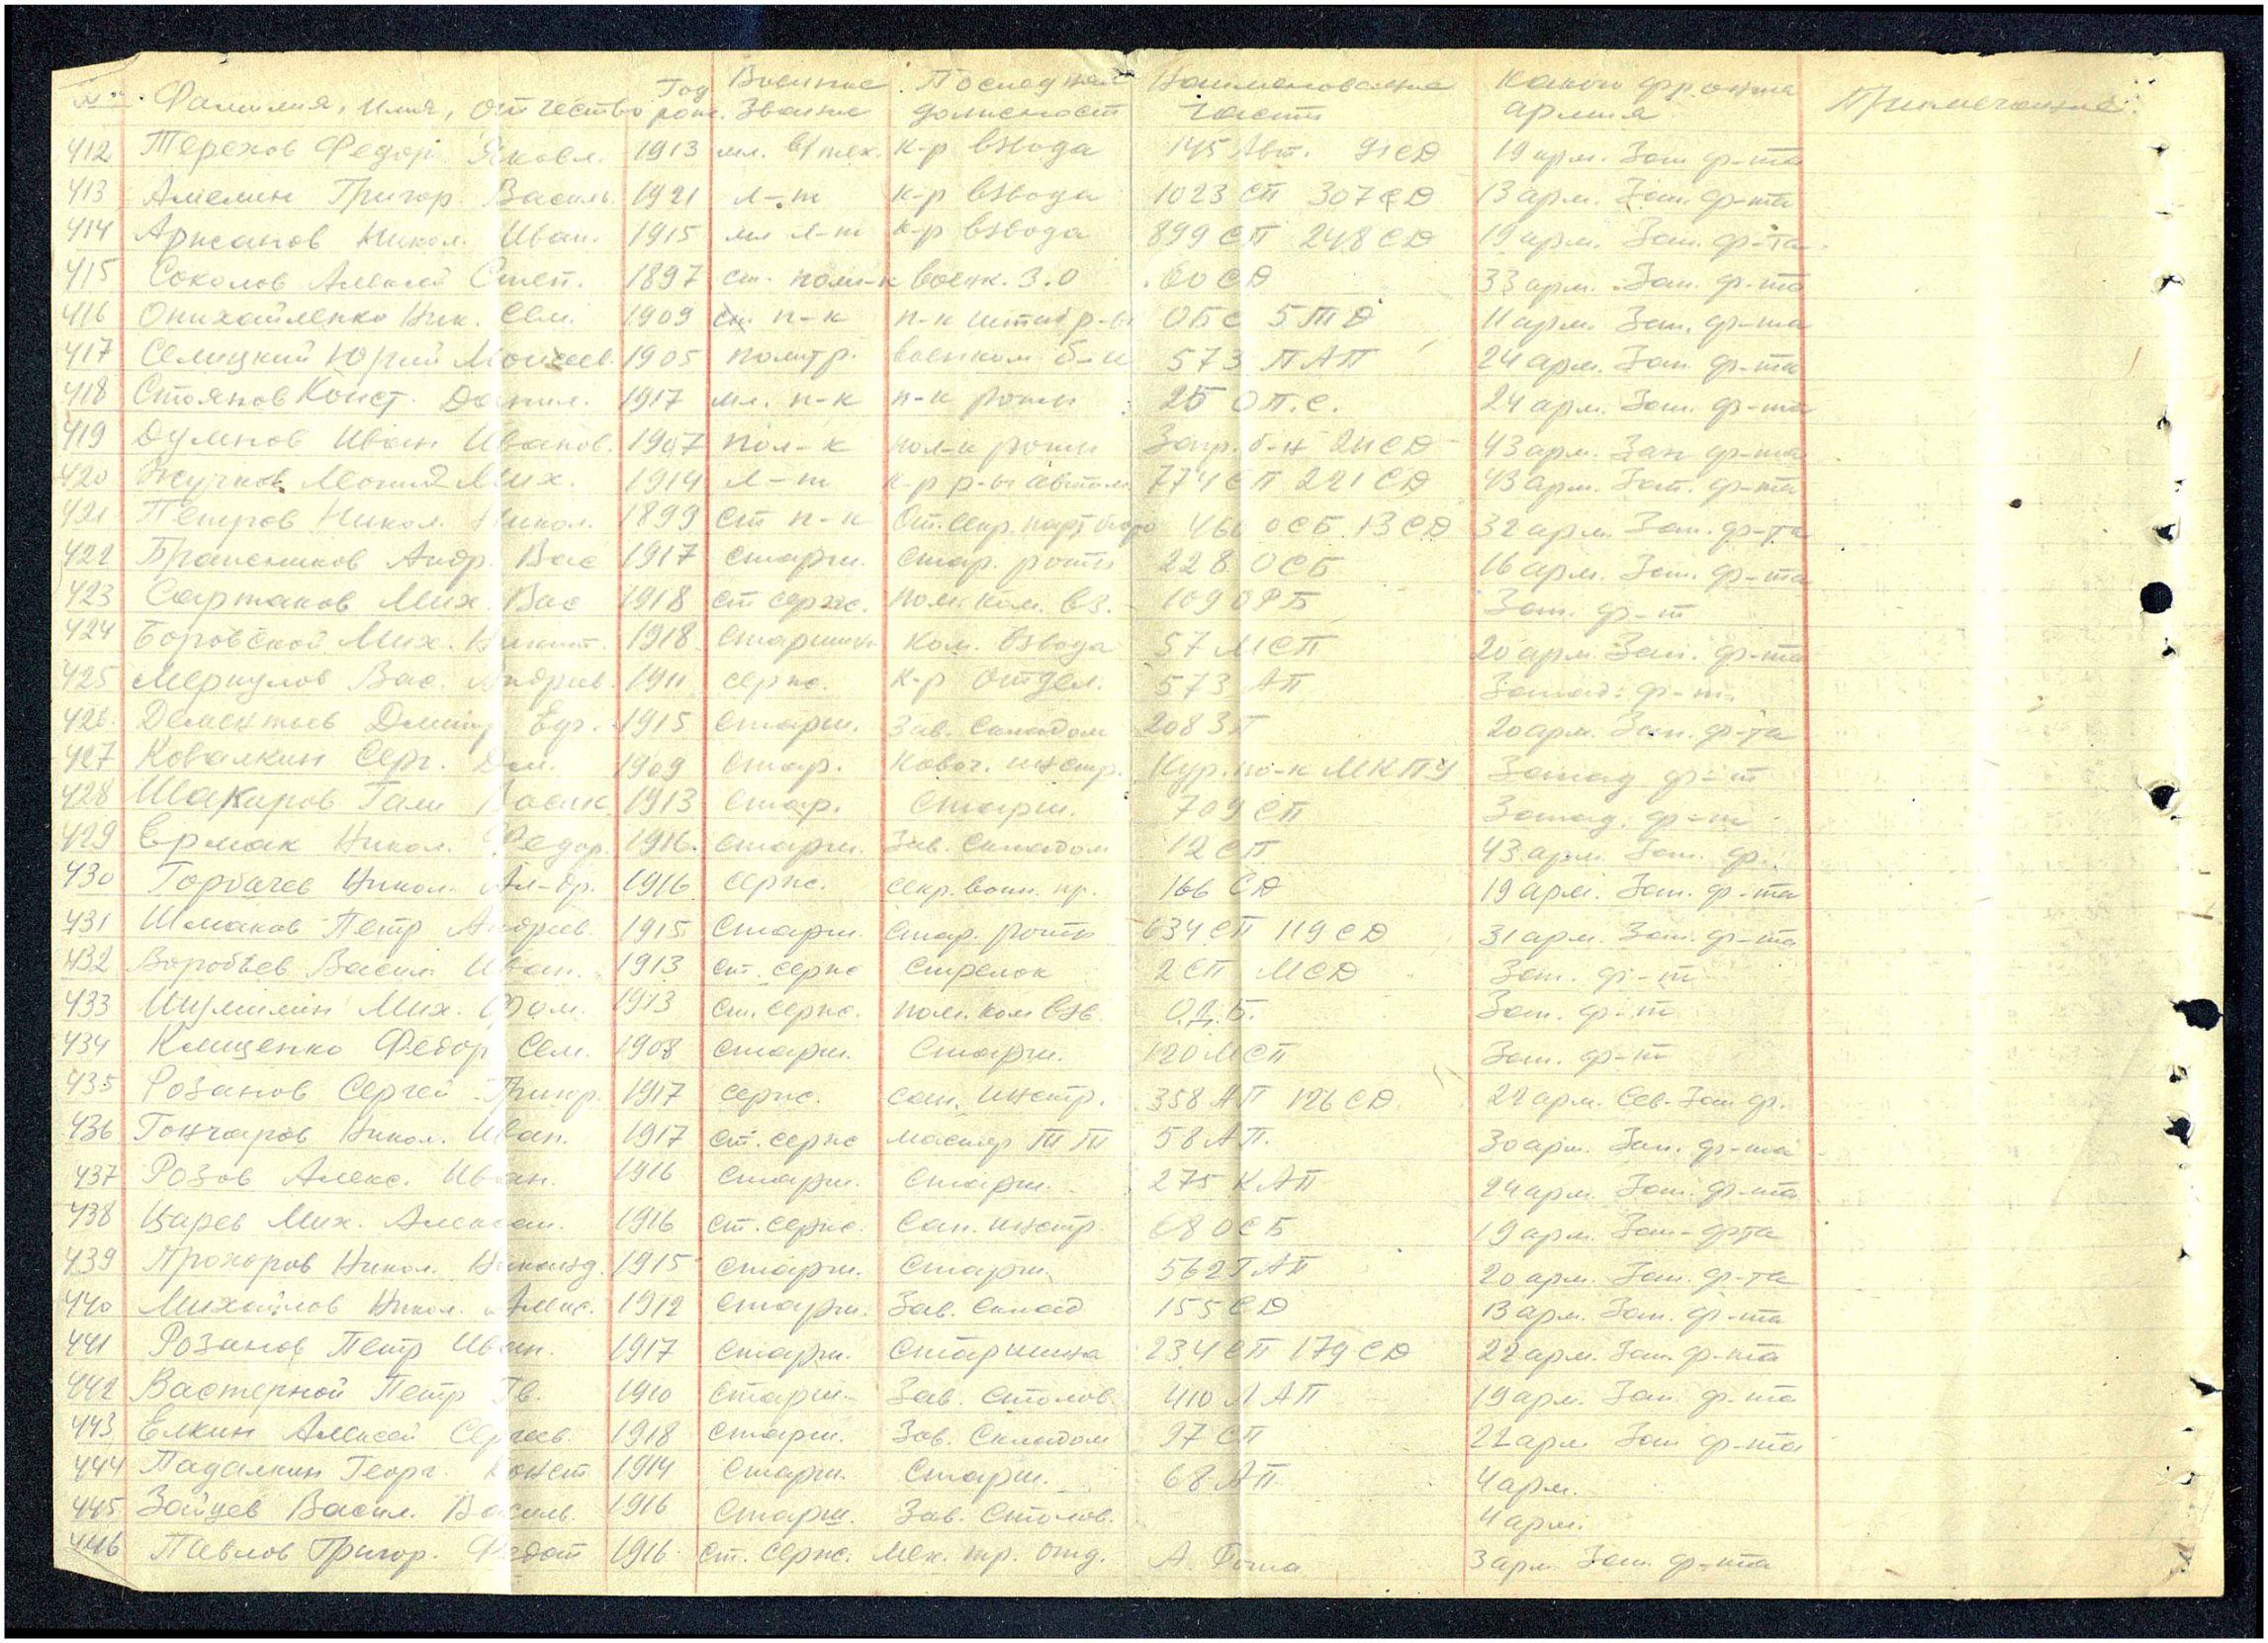 № Фамилия, Имя, Отчество Год рож. Военное Звание Последняя должност Наименование части Какого фронта армия Примечание
412 Терехов Федор Яковл. 1913 мл. в/тех. к-р взвода 145 Авт. 91 СД 19 арм. Зап ф-та
413 Амелин Григор. Василь. 1921 л-т к-р взвода 1023 СП 307 СД 13 арм. Зап. ф-та
414 Никол. Иван. 1915 мл л-т к-р взвода 899 СП 248 СД 19 арм. Зап. ф-та
415 Соколов Алексей Степ. 1897 ст. полит-к военк. З.О 60 СД 33 арм. Зап. ф-та
416 Ник. Сем. 1909 п-к п-к штаб р-ы ОБС 5 ТД 11 арм. Зап. ф-та
417 Селицкий Юрий Моисеев. 1905 политр. военком б-и 573 ПАП 24 арм. Зап. ф-та
418 Стоянов Конст. Данил. 1917 мл. п-к п-к роты 25 О.П.С. 24 арм. Зап. ф-та
419 Думнов Иван Иванов. 1907 пол-к пол-к роты Загр. б-н 211 СД 43 арм. Зап ф-та
420 Жучков Мих. 1914 л-т к-р р-ы автом 774 СП 221 СД 43 арм. Зап. ф-та
421 Петров Никол. Никол. 1899 ст п-к От. секр. парт бюро 466 ОСБ 13 СД 32 арм. Зап. ф-та
422 Андр. Вас 1917 старш. стар. роты 228 ОСБ 16 арм. Зап. ф-та
423 Сартаков Мих. Вас 1918 ст серж. пом. ком. вз. 109 ОРБ Зап. ф-т
424 Боровской Мих. Никит. 1918 старшин ком. взвода 57 МСП 20 арм. Зап. ф-та
425 Меркулов Вас. Андреев. 1911 серж. к-р отдел. 573 АП Запад. ф-т.
426 Дементьев Дмитр Егр. 1915 старш. Зав. складом 208 ЗП 20 арм. Зап. ф-та
427 Ковалкин Серг. Дм. 1909 стар. Ковоч. инстр. Кур. по-к МКПУ Запад ф-т
428 Шакиров Гали 1913 стар. старш. 709 СП Запад. ф-т
429 Ермак Никол. Федор. 1916 старш. Зав. складом 12 СП 43 арм. Зап. ф.
430 Горбачев Никол. Ал-др. 1916 серж. секр. воен. пр. 166 СД 19 арм. Зап. ф-та
431 Шмаков Петр Андреев. 1915 старш. стар. роты 634 СП 119 СД 31 арм. Зап. ф-та
432 Воробьев Васил Иван. 1913 ст. серж стрелок 2 СП МСД Зап. ф-т
433 Шумилин Мих. Фом. 1913 ст. серж. пом. ком взв. О.Д.Б. Зап. ф-т
434 Клищенко Федор Сем. 1908 старш. старш. 120 МСП Зап. ф-т
435 Розанов Сергей Григор. 1917 серж. сан. инстр. 358 АП 126 СД 22 арм. Сев. Зап ф.
436 Гончаров Никол. Иван. 1917 ст. серж мастер ТТ 58 АП. 30 арм. Зап. ф-та
437 Розов Алекс. Иван. 1916 старш. старш. 275 КАП 24 арм. Зап. ф-та
438 Царев Мих. Алексан. 1916 ст. серж. сан. инстр. 68 ОСБ 19 арм. Зап-фта
439 Прохоров Никол. 1915 старш. старш. 562 ГАП 20 арм. Зап. ф-та
440 Михайлов Никол. Алекс. 1912 старш. Зав. склад 155 СД 13 арм. Зап. ф-та
441 Розанов Петр Иван. 1917 старш. старшина 234 СП 179 СД 22 арм. Зап. ф-та
442 Петр 1910 старш. Зав. столов 410 ЛАП 19 арм. Зап. ф-та
443 Елкин Алексей Сергеев. 1918 старш. Зав. складом 97 СП 22 арм Зап ф-та
444 Падалкин Георг. Конст 1914 старш. старш. 68 АП 4 арм.
445 Зайцев Васил. Василь. 1916 старш. Зав. столов. 4 арм.
446 Павлов Григор. Федот 1916 ст. серж. мех. тр. отд. 3 арм Зап. ф-та